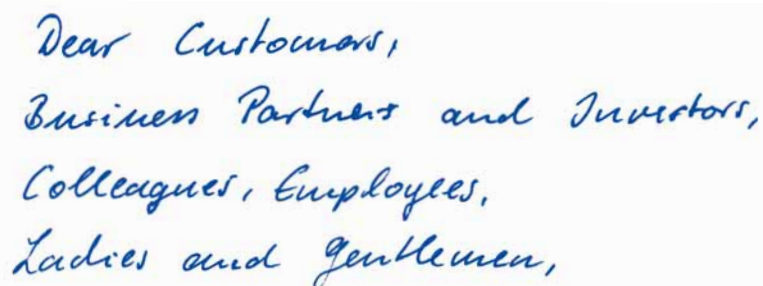 Dear Customers,
Business Partners and Investors,
Colleagues, Employees,
Ladies and Gentlemen,